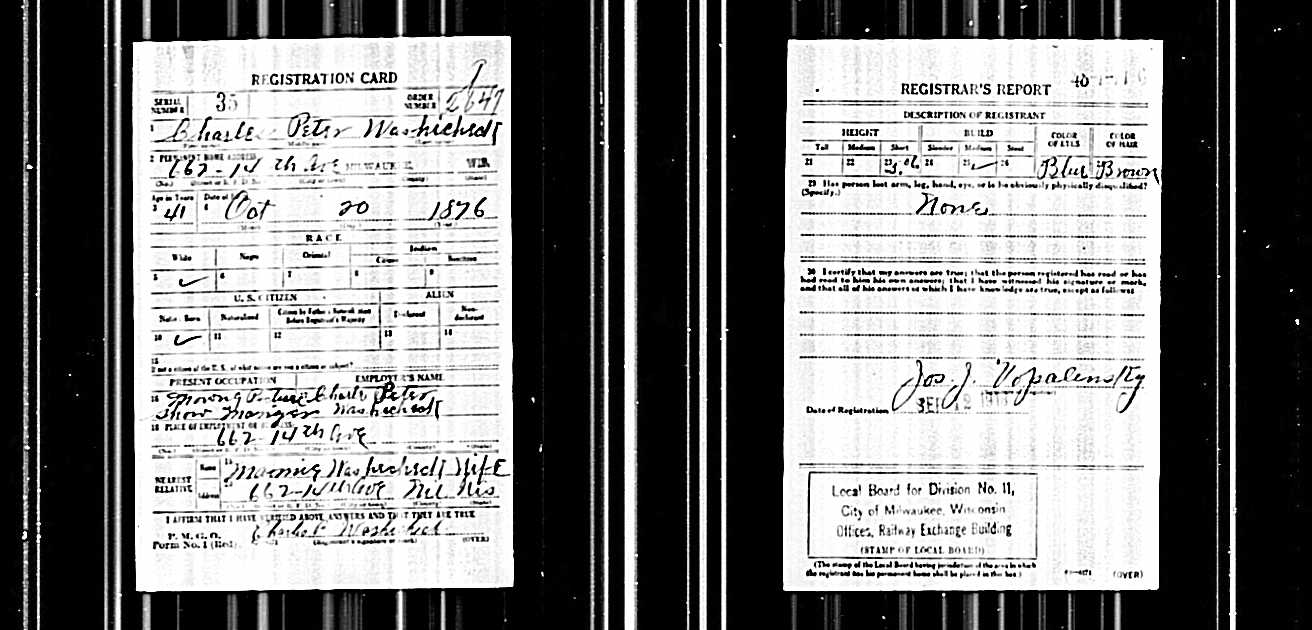 REGISTRATION CARD
SERIAL NUMBER 35 ORDER NUMBER 2647
1 Charles Peter Washichedt
(First name) (Middle name) (Last name)
2 PERMANENT HOME ADDRESS
662-14 th Ave MILWAUKEE, WIS.
(No.) (City or town) (County) (State)
Age in Years Date of
3 41 4 Oct 20 1876
(Month) (Day) (Year)
RACE
White Negro Oriental Indian
Citizen Noncitizen
5 ✓ 6 7 8 9
U. S. CITIZEN ALIEN
Native Born Naturalized Citizen by Father's Naturalization Before Registrant's Majority Declarant Non-declarant
10 ✓ 11 12 13 14
15
If not a citizen of the U. S., of what nation are you a citizen or subject?
PRESENT OCCUPATION EMPLOYER'S NAME
16 Moving Picture Charles Peter
Show Manger
18 PLACE OF EMPLOYMENT OR BUSINESS
662 14th Ave
(No.) (City or town) (County) (State)
NEAREST RELATIVE Name 19 Wife
Address 20 662-14th Ave Mil Wis
I AFFIRM THAT I HAVE VERIFIED ABOVE ANSWERS AND THAT THEY ARE TRUE
P. M. G. O.
Form No. 1 (Red) Charles P.
(Registrant's signature or mark) (OVER)
REGISTRAR'S REPORT
DESCRIPTION OF REGISTRANT
HEIGHT BUILD COLOR OF EYES COLOR OF HAIR
Tall Medium Short Slender Medium Stout
21 22 23 5.06 24 25 ✓ 26 Blue Brown
29 Has person lost arm, leg, hand, eye, or is he obviously physically disqualified?
(Specify.)
None
30 I certify that my answers are true; that the person registered has read or has
had read to him his own answers; that I have witnessed his signature or mark,
and that all of his answers of which I have knowledge are true, except as follows:
Jos. J. Vopalensky
Date of Registration SEP 12 1918
Local Board for Division No. 11,
City of Milwaukee, Wisconsin
Offices, Railway Exchange Building
(STAMP OF LOCAL BOARD)
(The stamp of the Local Board having jurisdiction of the area in which
the registrant has his permanent home shall be placed in this box.)
(OVER)